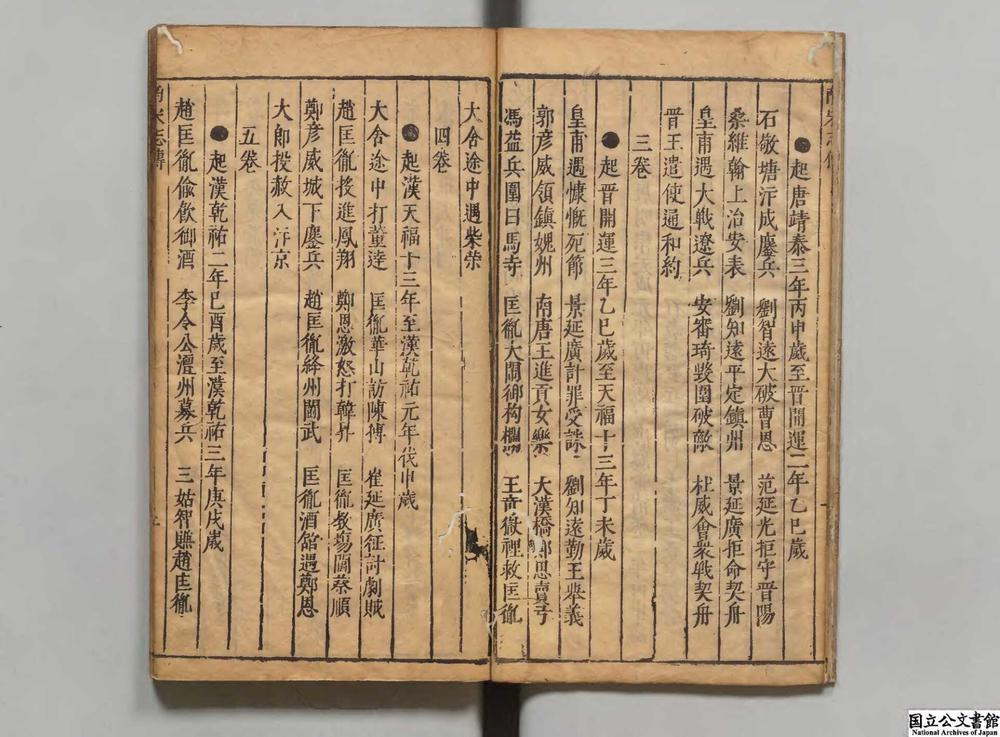 ●起唐靖泰三年丙申歲至晉開運二年乙巳歲
石敬塘汴成鏖兵　劉智遠大破曹恩　范延光拒守晉陽
桑維翰上治安表　劉知遠平定鎮州　景延廣拒命契丹
皇甫遇大戰遼兵　安審琦發圍破敵　杜威會衆戰契丹
晉王遣使通和約
三卷
●起晉開運三年乙巳歲至天福十三年丁未歲
皇甫遇慷慨死節　景延廣計罪受誅　劉知遠勤王舉義
郭彦威領鎮魏州　南唐王進貢女樂　大漢橋鄭恩賣弓
馮益兵圍日馬寺　匡胤大閙御构欄　王彦嶽裡救匡胤
大舍途中遇柴荣
四卷
●起漢天福十三年至漢乾祐元年戊申歲
大舍途中打董逵　匡胤華山訪陳摶　崔延廣征討劇賊
趙匡胤投進鳳翔　鄭恩激怒打韓昇　匡胤教塲鬪蔡順
鄭彦威城下鏖兵　趙匡胤絳州閙武　匡胤酒舘遇鄭恩
大郎投赦入汴京
五卷
●起漢乾祐二年巳酉歲至漢乾祐三年庚戌歲
趙匡胤偷飲御酒　李令公澶州募兵　三姑智賺趙匡胤
南宋志傳
国立公文書館
National Archives of Japan